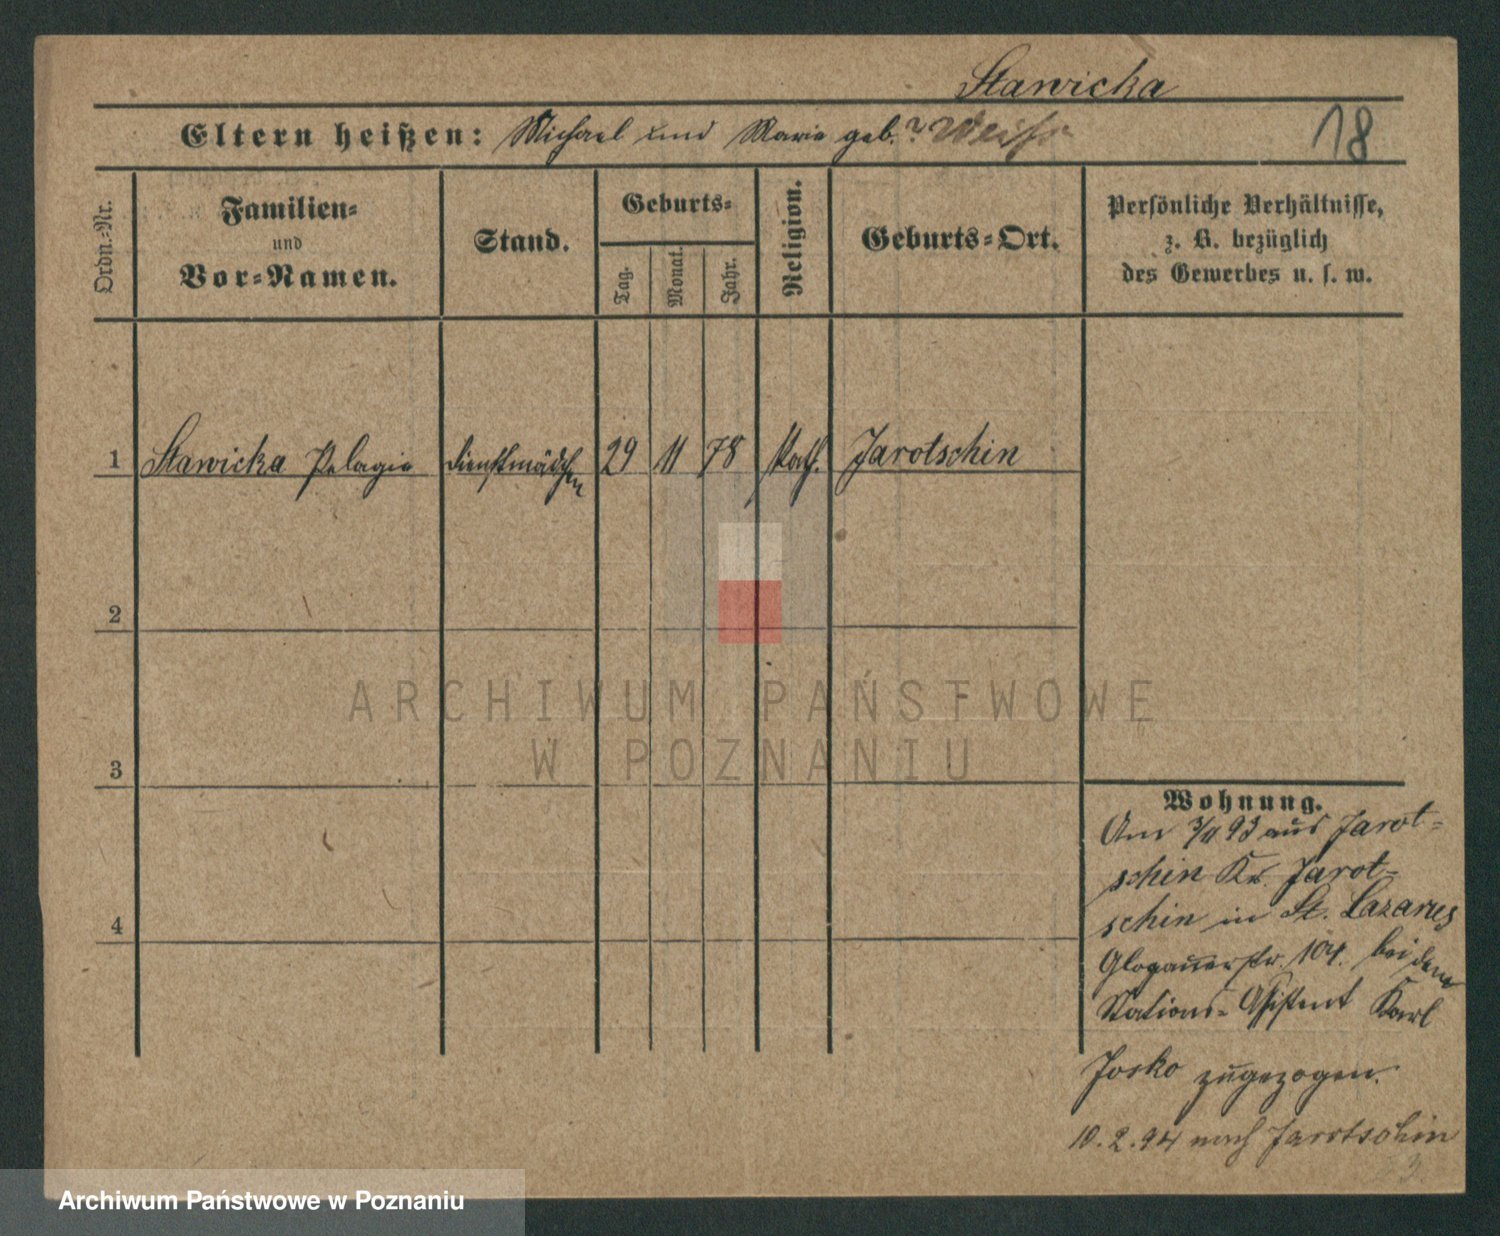 Stawicka
Eltern heißen: Michael und Marie geb. ? Weiß
18
Ordn.=Nr.
Familien=
und
Vor=Namen.
Stand.
Geburts=
Tag.
Monat.
Jahr.
Religion.
Geburts=Ort.
Persönliche Verhältnisse,
z. B. bezüglich
des Gewerbes u. s. w.
1 Stawicka Pelagie Dienstmädchen 29 11 78 Kath. Jarotschin
2
3
4
Wohnung.
Am 3/11 93 aus Jarot=
schin Kr. Jarot=
schin in St. Lazarus
Glogauerstr. 104. bei dem
Stations=Assistent Karl
Josko zugezogen.
10.2.94 nach Jarotschin
ARCHIWUM PAŃSTWOWE
W POZNANIU
Archiwum Państwowe w Poznaniu